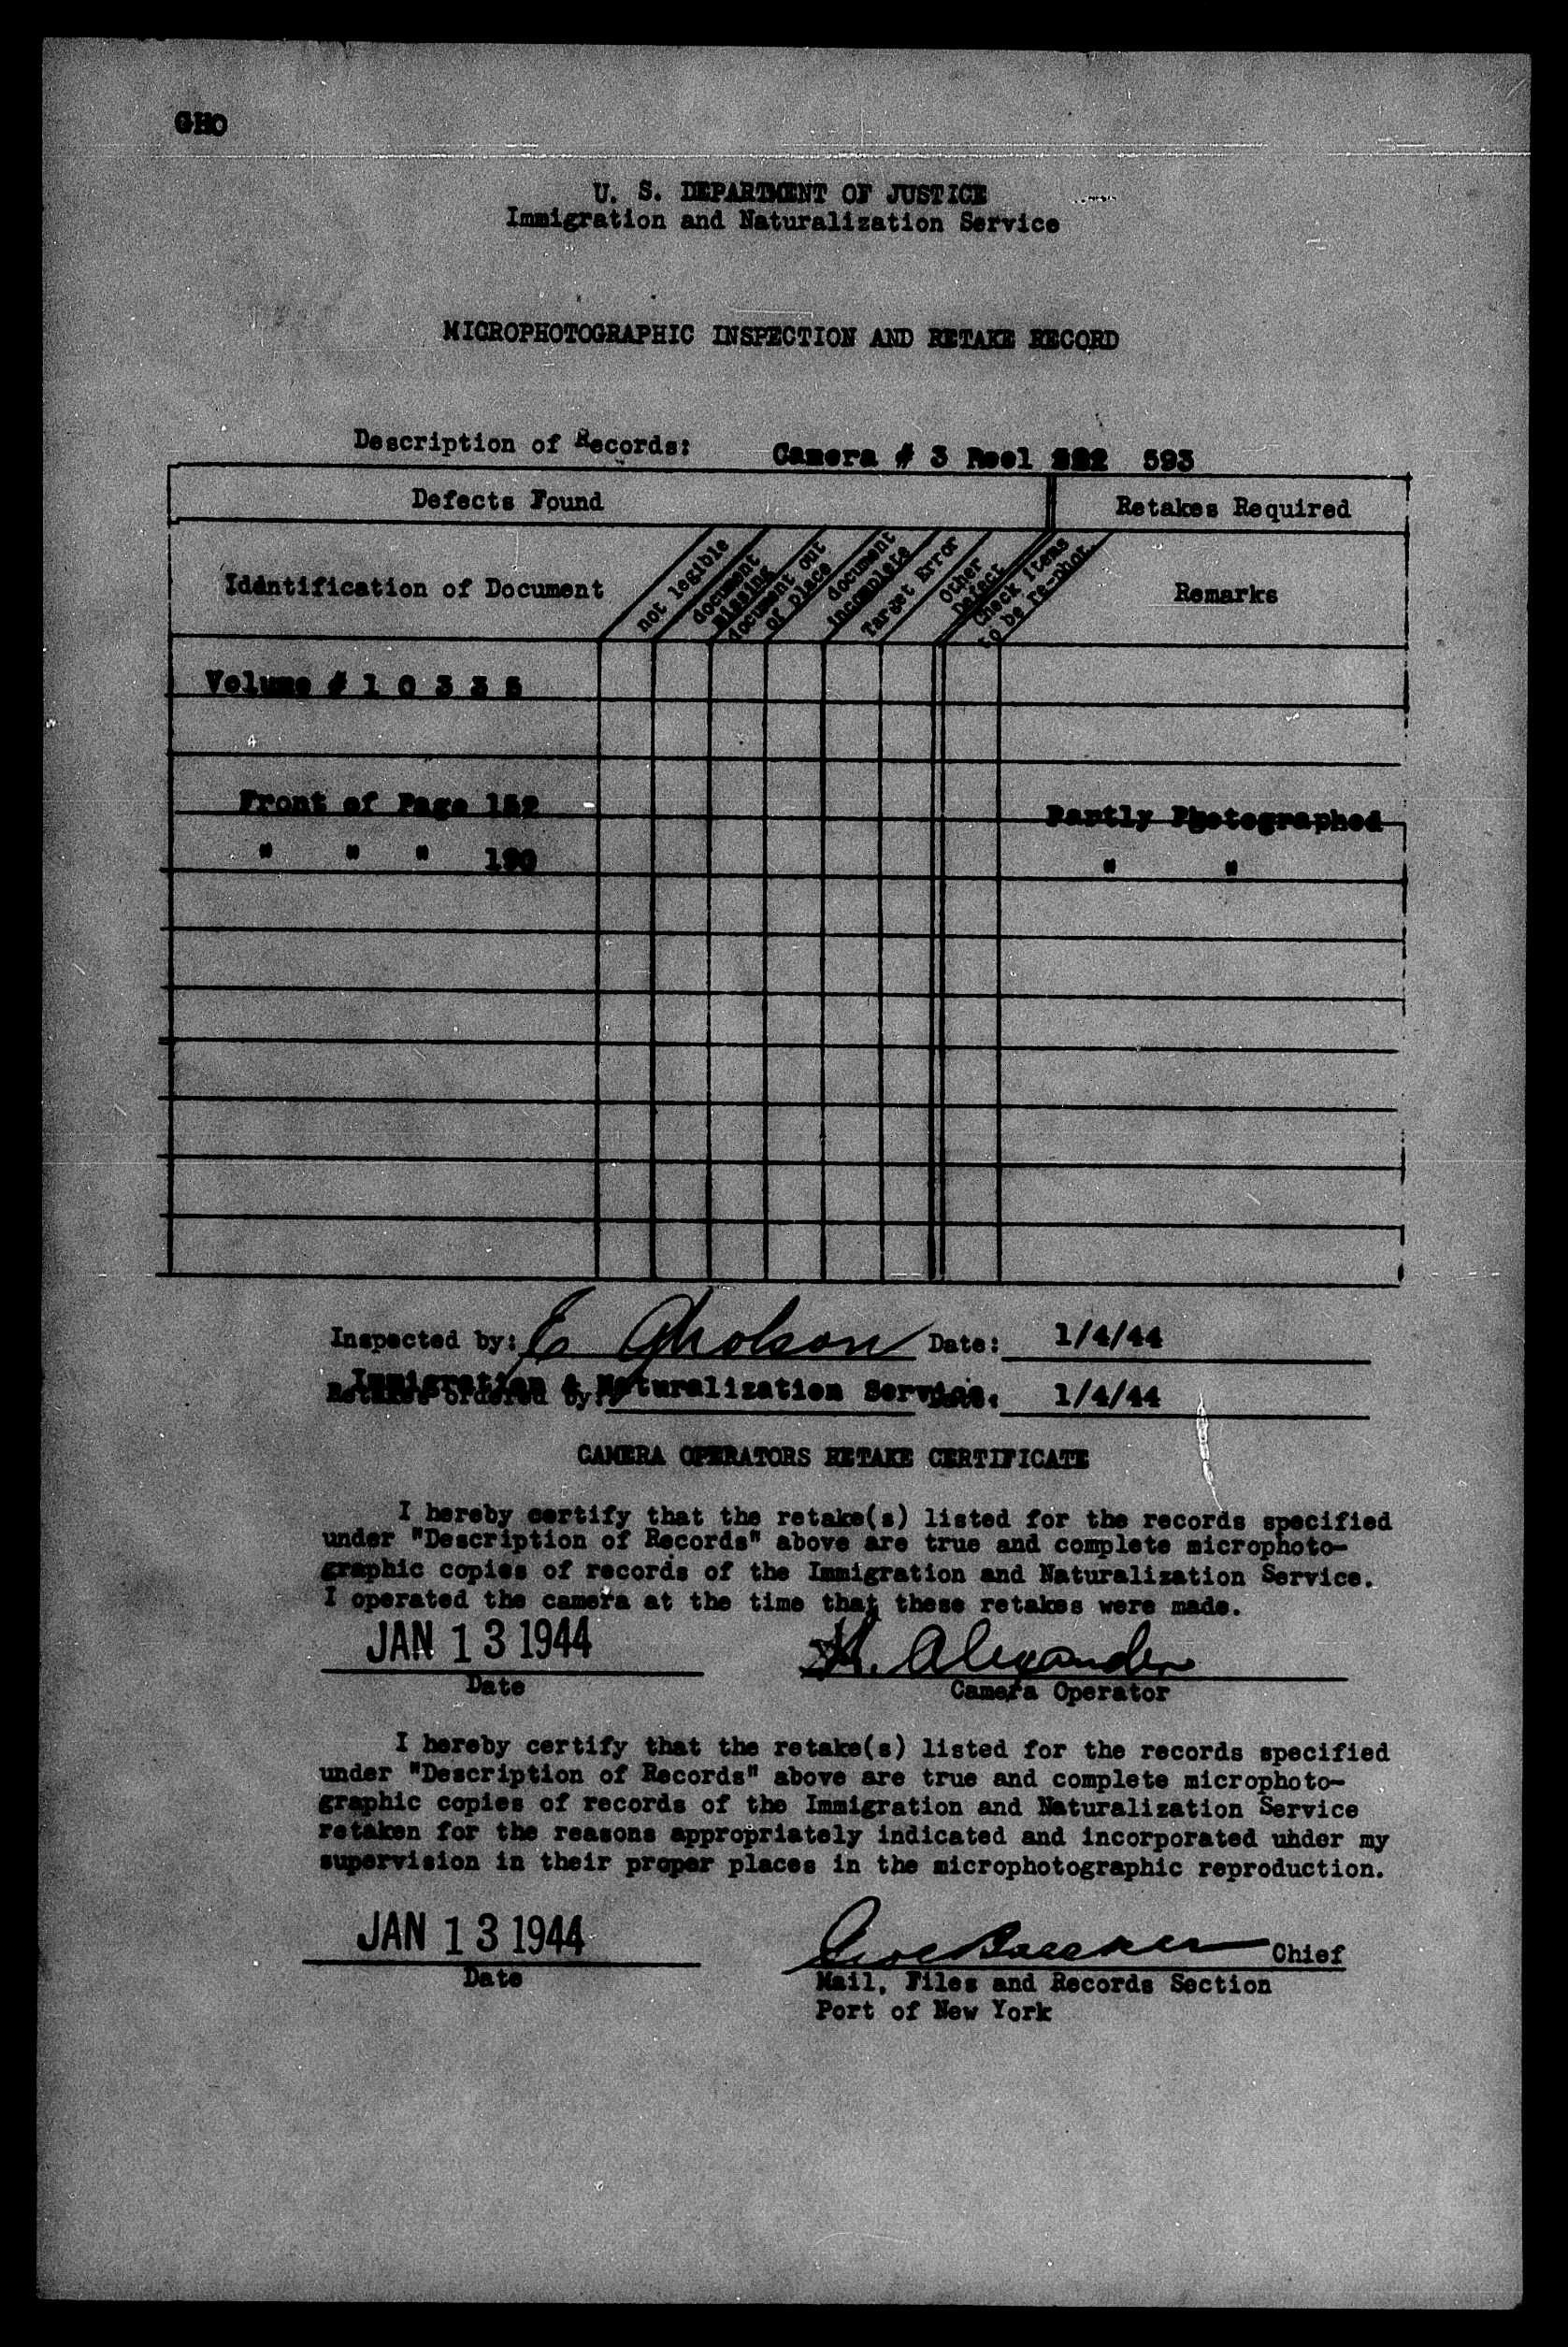 GHO
U. S. DEPARTMENT OF JUSTICE
Immigration and Naturalization Service
MICROPHOTOGRAPHIC INSPECTION AND RETAKE RECORD
Description of Records: Camera # 3 Reel 593
Defects Found
Retakes Required
Identification of Document
not legible
document missing
document out of place
document incomplete
Target Error
Other Defect
Check items to be re-phot.
Remarks
Volume # 1 0 3 3 5
Front of Page 152 Partly Photographed
" " " 190 " "
Inspected by: E Gholson Date: 1/4/44
Immigration & Naturalization Service.
Retakes ordered by: Date: 1/4/44
CAMERA OPERATORS RETAKE CERTIFICATE
I hereby certify that the retake(s) listed for the records specified
under "Description of Records" above are true and complete microphoto-
graphic copies of records of the Immigration and Naturalization Service.
I operated the camera at the time that these retakes were made.
JAN 13 1944 Alexander
Date Camera Operator
I hereby certify that the retake(s) listed for the records specified
under "Description of Records" above are true and complete microphoto-
graphic copies of records of the Immigration and Naturalization Service
retaken for the reasons appropriately indicated and incorporated uhder my
supervision in their proper places in the microphotographic reproduction.
JAN 13 1944 Chief
Date Mail, Files and Records Section
Port of New York